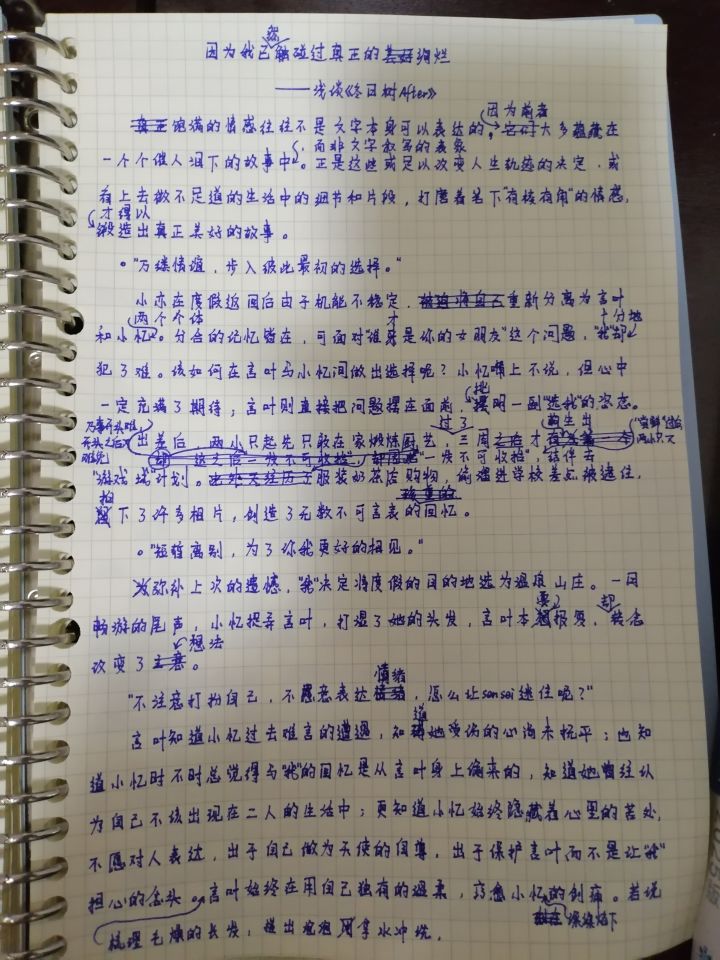 因为我已然触碰过真正的绚烂
——浅谈《终日树After》
饱满的情感往往不是文字本身可以表达的，因为前者大多蕴藏在
一个个催人泪下的故事中，而非文字叙写的表象。正是这些或足以改变人生轨迹的决定，或
看上去微不足道的生活中的细节和片段，打磨着笔下"有棱有角"的情感，
才得以
锻造出真正美好的故事。
。"万缕情谊，步入彼此最初的选择。"
小亦在度假返回后由于机能不稳定，重新分离为言叶
和小忆两个个体。分合的记忆皆在，可面对"谁才是你的女朋友"这个问题，"我"却十分地
犯了难。该如何在言叶与小忆间做出选择呢？小忆嘴上不说，但心中
一定充满了期待；言叶则直接把问题摆在面前，摆明一副"选我"的姿态。
万事开头难，
开头之后不
难说
出差后，两小只起先只敢在家煅炼厨艺，三周过了才萌生出
"尝鲜"过的
两小只又
"一发不可收拾"，结伴去
"游戏城"计划。服装奶茶店购物，偷溜进学校差点被逮住，
拍下了许多相片，创造了无数不可言表的回忆。
。"短暂离别，为了你我更好的相见。"
为弥补上次的遗憾，"我"决定将度假的目的地选为温泉山庄。一日
畅游的尾声，小忆捉弄言叶，打湿了她的头发，言叶本要报复，却转念
改变了想法。
"不注意打扮自己，不愿意表达情绪，怎么让sensei迷住呢？"
言叶知道小忆过去难言的遭遇，知道她受伤的心尚未抚平；也知
道小忆时不时总觉得与"我"的回忆是从言叶身上偷来的，知道她曾经认
为自己不该出现在二人的生活中；更知道小忆始终隐藏着心里的苦处，
不愿对人表达，出于自己做为天使的自尊，出于保护言叶而不是让"我"
担心的念头。言叶始终在用自己独有的温柔，疗愈小忆的创痛。若说
深深烙下
梳理毛燥的长发，搓出泡泡用拿水冲洗，